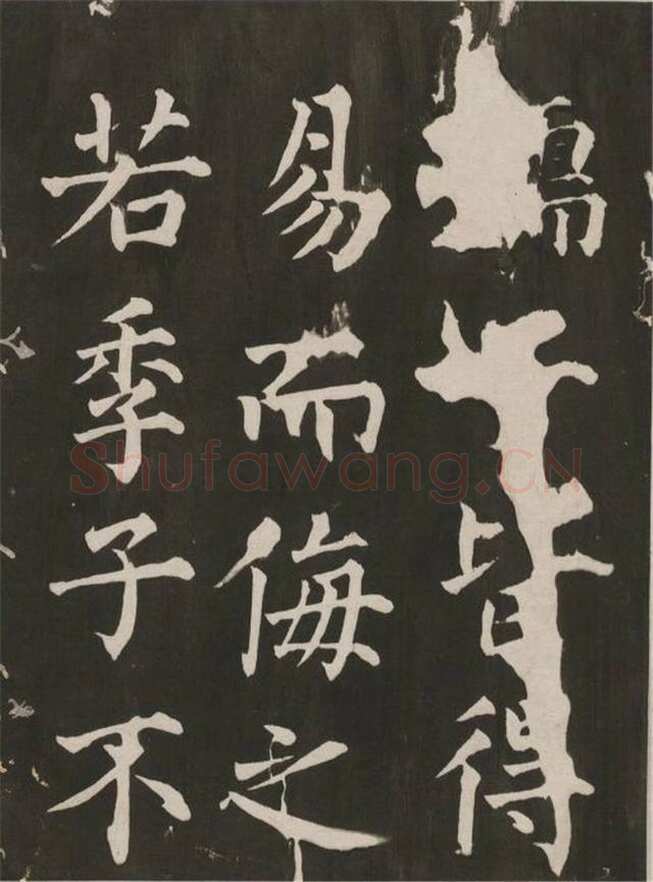 皆得
易而侮之
若季子不
Shufawang.CN